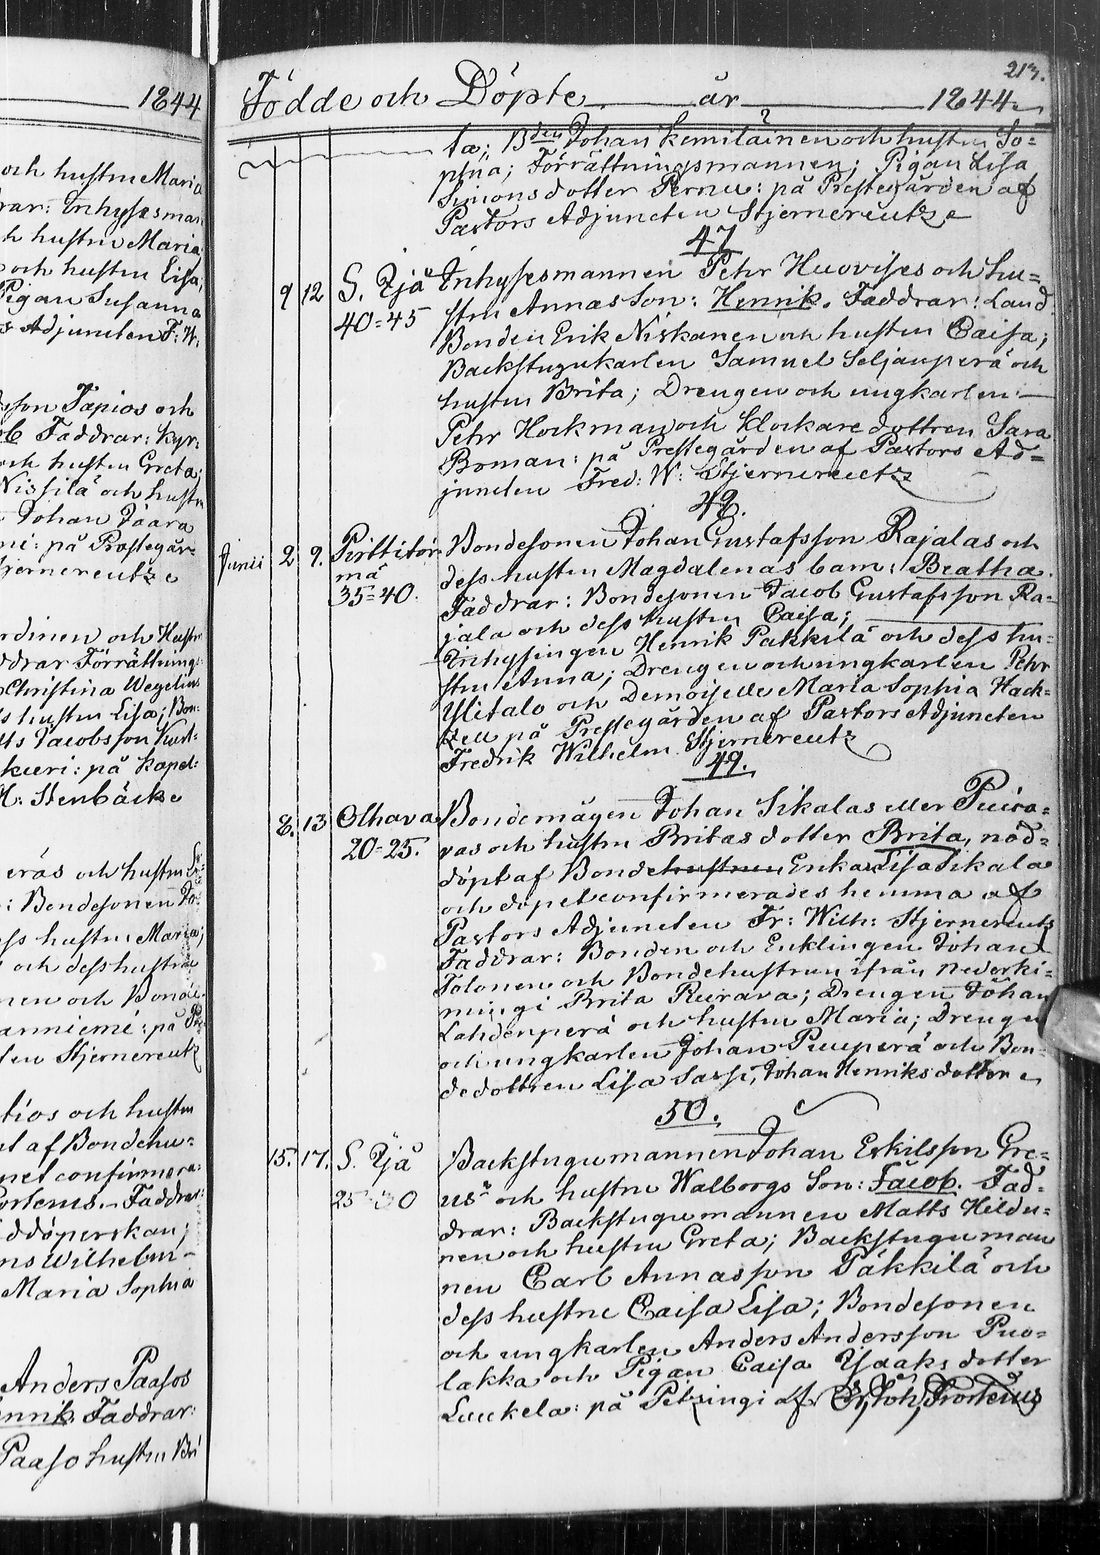 1844
och hustru Maria
hustru Maria
och hustru Lisa,
Pigan Susanna
Adjuncten F: W:
son Tapios och
Faddrar: Kyr-
och hustru Greta;
Nissilä och hustru
Johan Jaara
på Prestegår-
Stjernereutz
och Hustru
Förrättnings-
Christina Wegelius
hustru Lisa; Bon-
Jacobsson
på Kapel-
Stenbäck
och hustru
: Bondesonen
hustru Maria;
och dess hustru
och
: på
Stjernereutz
och hustru
af Bondehu-
confirmera-
Faddrar:
Wilhelm
Maria Sophia
Anders Paasos
Henrik Faddrar:
Paaso hustru
213.
Födde och Döpte år 1844
ta; Johan Kemiläinen och hustru So-
phia; Förrättningsmannen; Pigan Lisa
Simonsdotter Pernu: på Prestegården af
Pastors Adjuncten Stjernereutz
47
9 12 S. Ijå Inhysesmannen Pehr Huovises och hu-
40-45 stru Annas Son: Henrik. Faddrar: Land
Bonden Erik Niskanen och hustru Caisa;
Backstugukarlen Samuel Seljänperä och
hustru Brita; Drengen och ungkarlen
Pehr Hockman och Klockaredottren Sara
Boman: på Prestegården af Pastors Ad-
juncten Fred: W: Stjernereutz
48.
Junii 2 9. Pirttitör- Bondesonen Johan Gustafsson Rajalas och
mä dess hustru Magdalenas barn: Beatha.
35-40. Faddrar: Bondesonen Jacob Gustafsson Ra-
jala och dess hustru Caisa;
Inhysingen Henrik Pakkilä och dess hu-
stru Anna; Drengen och ungkarlen Pehr
Ylitalo och Demoiselle Maria Sophia Hack-
zell på Prestegården af Pastors Adjuncten
Fredrik Wilhelm Stjernereutz
49.
8. 13 Olhava Bondemågen Johan Sikalas eller Puira-
20-25. vas och hustru Britas dotter Brita, nöd-
döpt af Bondehustrun Erika Lisa Sikala
och döpet confirmerades hemma af
Pastors Adjuncten Fr: Wilh: Stjernereutz
Faddrar: Bonden och Enklingen Johan
Tolonen och Bondehustrun ifrån Nederki-
mingi Brita Ruirava; Drengen Johan
Lahdenperä och hustru Maria; Drengen
och ungkarlen Johan Puuperä och Bon-
dedottren Lisa Sassi, Johan Henriksdotter
50.
15. 17. S. Ijå Backstugumannen Johan Eskilsson Gre-
25-30 us och hustru Walborgs Son: Jacob. Fad-
drar: Backstugumannen Matts Hildu-
nen och hustru Greta; Backstuguman
nen Carl Annasson Päkkilä och
dess hustru Caisa Lisa; Bondesonen
och ungkarlen Anders Andersson Puo-
lakka och Pigan Caisa Isaaks dotter
Luukela: på af Joh, Frosterus